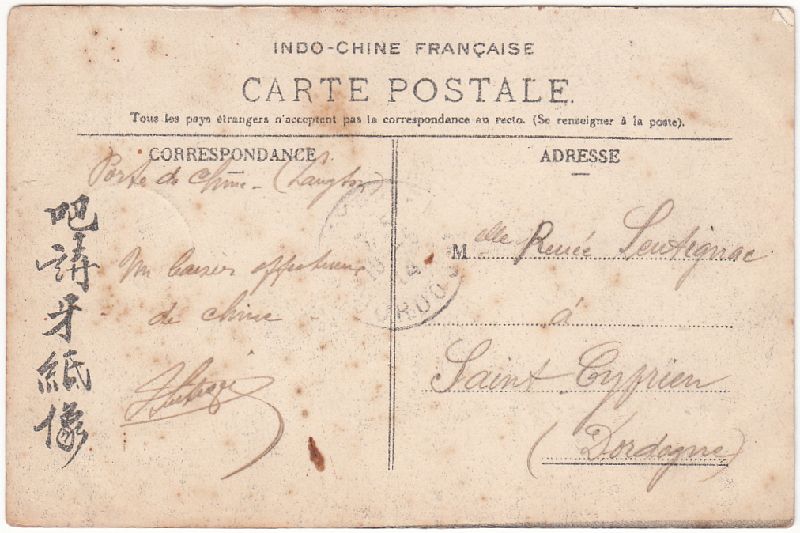 INDO-CHINE FRANÇAISE
CARTE POSTALE
Tous les pays étrangers n'acceptent pas la correspondance au recto. (Se renseigner à la poste).
CORRESPONDANCE
Porte de Chine - (Langson)
Un baiser affectueux
de Chine
吧講牙紙像
ADRESSE
Melle Renée Sentignac
à
Saint Cyprien
(Dordogne)